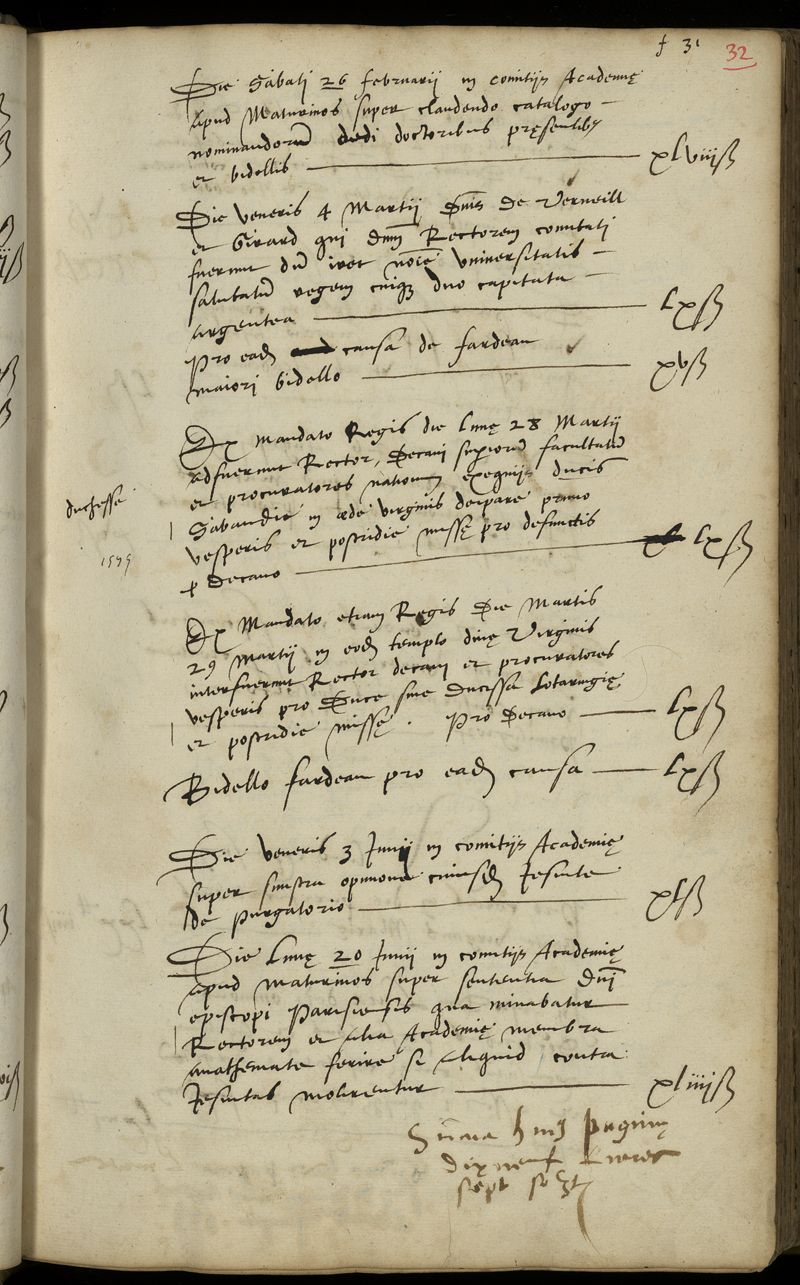 f 31 32
Die Sabati 26 februarij in comitijs Academię
apud Maturinos super claudendo catalogo
nominandorum dedi doctoribus pręsentibus
et bidellis xlviijß
Die veneris 4 Martij Dnis de Verneill
et Girard qui dnum Rectorem comitati
fuerunt dum iret noie universitatis
salutatum regem cuique duo capitata
argentea lxß
Pro eadem causa de fardeau
maiori bidello xvß
Ex mandato Regis die lunę 28 Martij
adfuerunt Rector, Decani superiorum facultatum
et procuratores nationum exequijs ducis
duchesse
Sabaudię in æde virginis deiparę primo
vesperis et postridie missę pro defunctis
1575
p Decano lxß
Ex Mandato etiam Regis Die Martis
29 Martij in eodem templo divę Virginis
interfuerunt Rector decani et procuratores
vesperis pro Duce sive ducissa Lotaringię
et postridie missę. Pro Decano lxß
Bidello fardeau pro eadem causa lxß
Die veneris 3 Junij in comitijs Academię
super sinistra opinione cuiusdem Jesuitę
de purgatorio xlß
Die lunę 20 Junij in comitijs Academię
apud maturinos super sententia Dni
episcopi Parisiensis qua minabatur
Rectorem et alia Academię membra
anathemate ferire si aliquid contra
Jesuitas molirentur xliiijß
Summa huius paginę
dixneuf livres
sept s